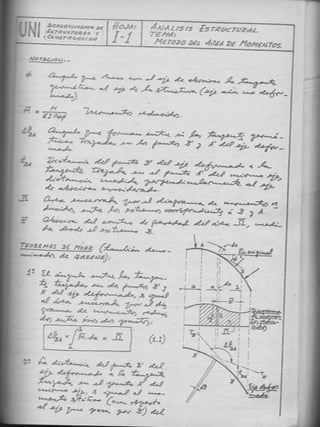 UNI
DEPARTAMENTO DE
ESTRUCTURAS Y
CONSTRUCCION
HOJA:
I-1
ANALISIS ESTRUCTURAL
TEMA:
METODO DEL AREA DE MOMENTOS.
NOTACION.-
φ Angulo que hace con el eje de abscisas la tangente
geométrica al eje de la estructura (eje aún no defor-
mado).
M̄ = M / EI cosφ Momentos reducidos.
Angulo que forman entre sí las tangentes geomé-
tricas trazadas en los puntos B' y A' del eje defor-
mado.
Distancia del punto B' del eje deformado a la
tangente trazada en el punto A' del mismo eje,
distancia medida perpendicularmente al eje
de abscisas considerado.
Area encerrada por el diagrama de momentos re
ducidos, entre los extremos correspondientes a B y A.
Abscisa del centro de gravedad del área, medi-
da desde el extremo B.
TEOREMAS DE MOHR (también deno-
minados de GREENE):
1º El ángulo entre las tangen-
tes trazadas en dos puntos B' y
A' del eje deformado, es igual
al área encerrada por el dia
grama de momentos reduci
dos entre esos dos puntos:
(1.1)
2º La distancia del punto B' del
eje deformado a la tangente
trazada en el punto A' del
mismo eje, es igual al mo-
mento estático (con respecto
al eje que pasa por B') del
Eje original
Diagrama
de momen
tos redu-
cidos
Eje defor
mado